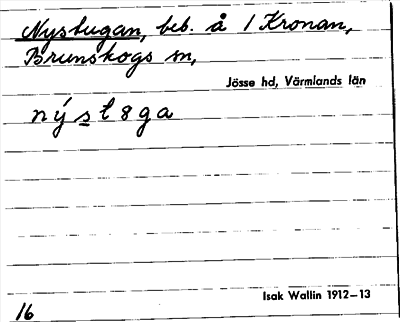 Nystugan, beb. å 1 Kronan,
Brunskogs sn,
Jösse hd, Värmlands län
nýst8ga
Isak Wallin 1912–13
16